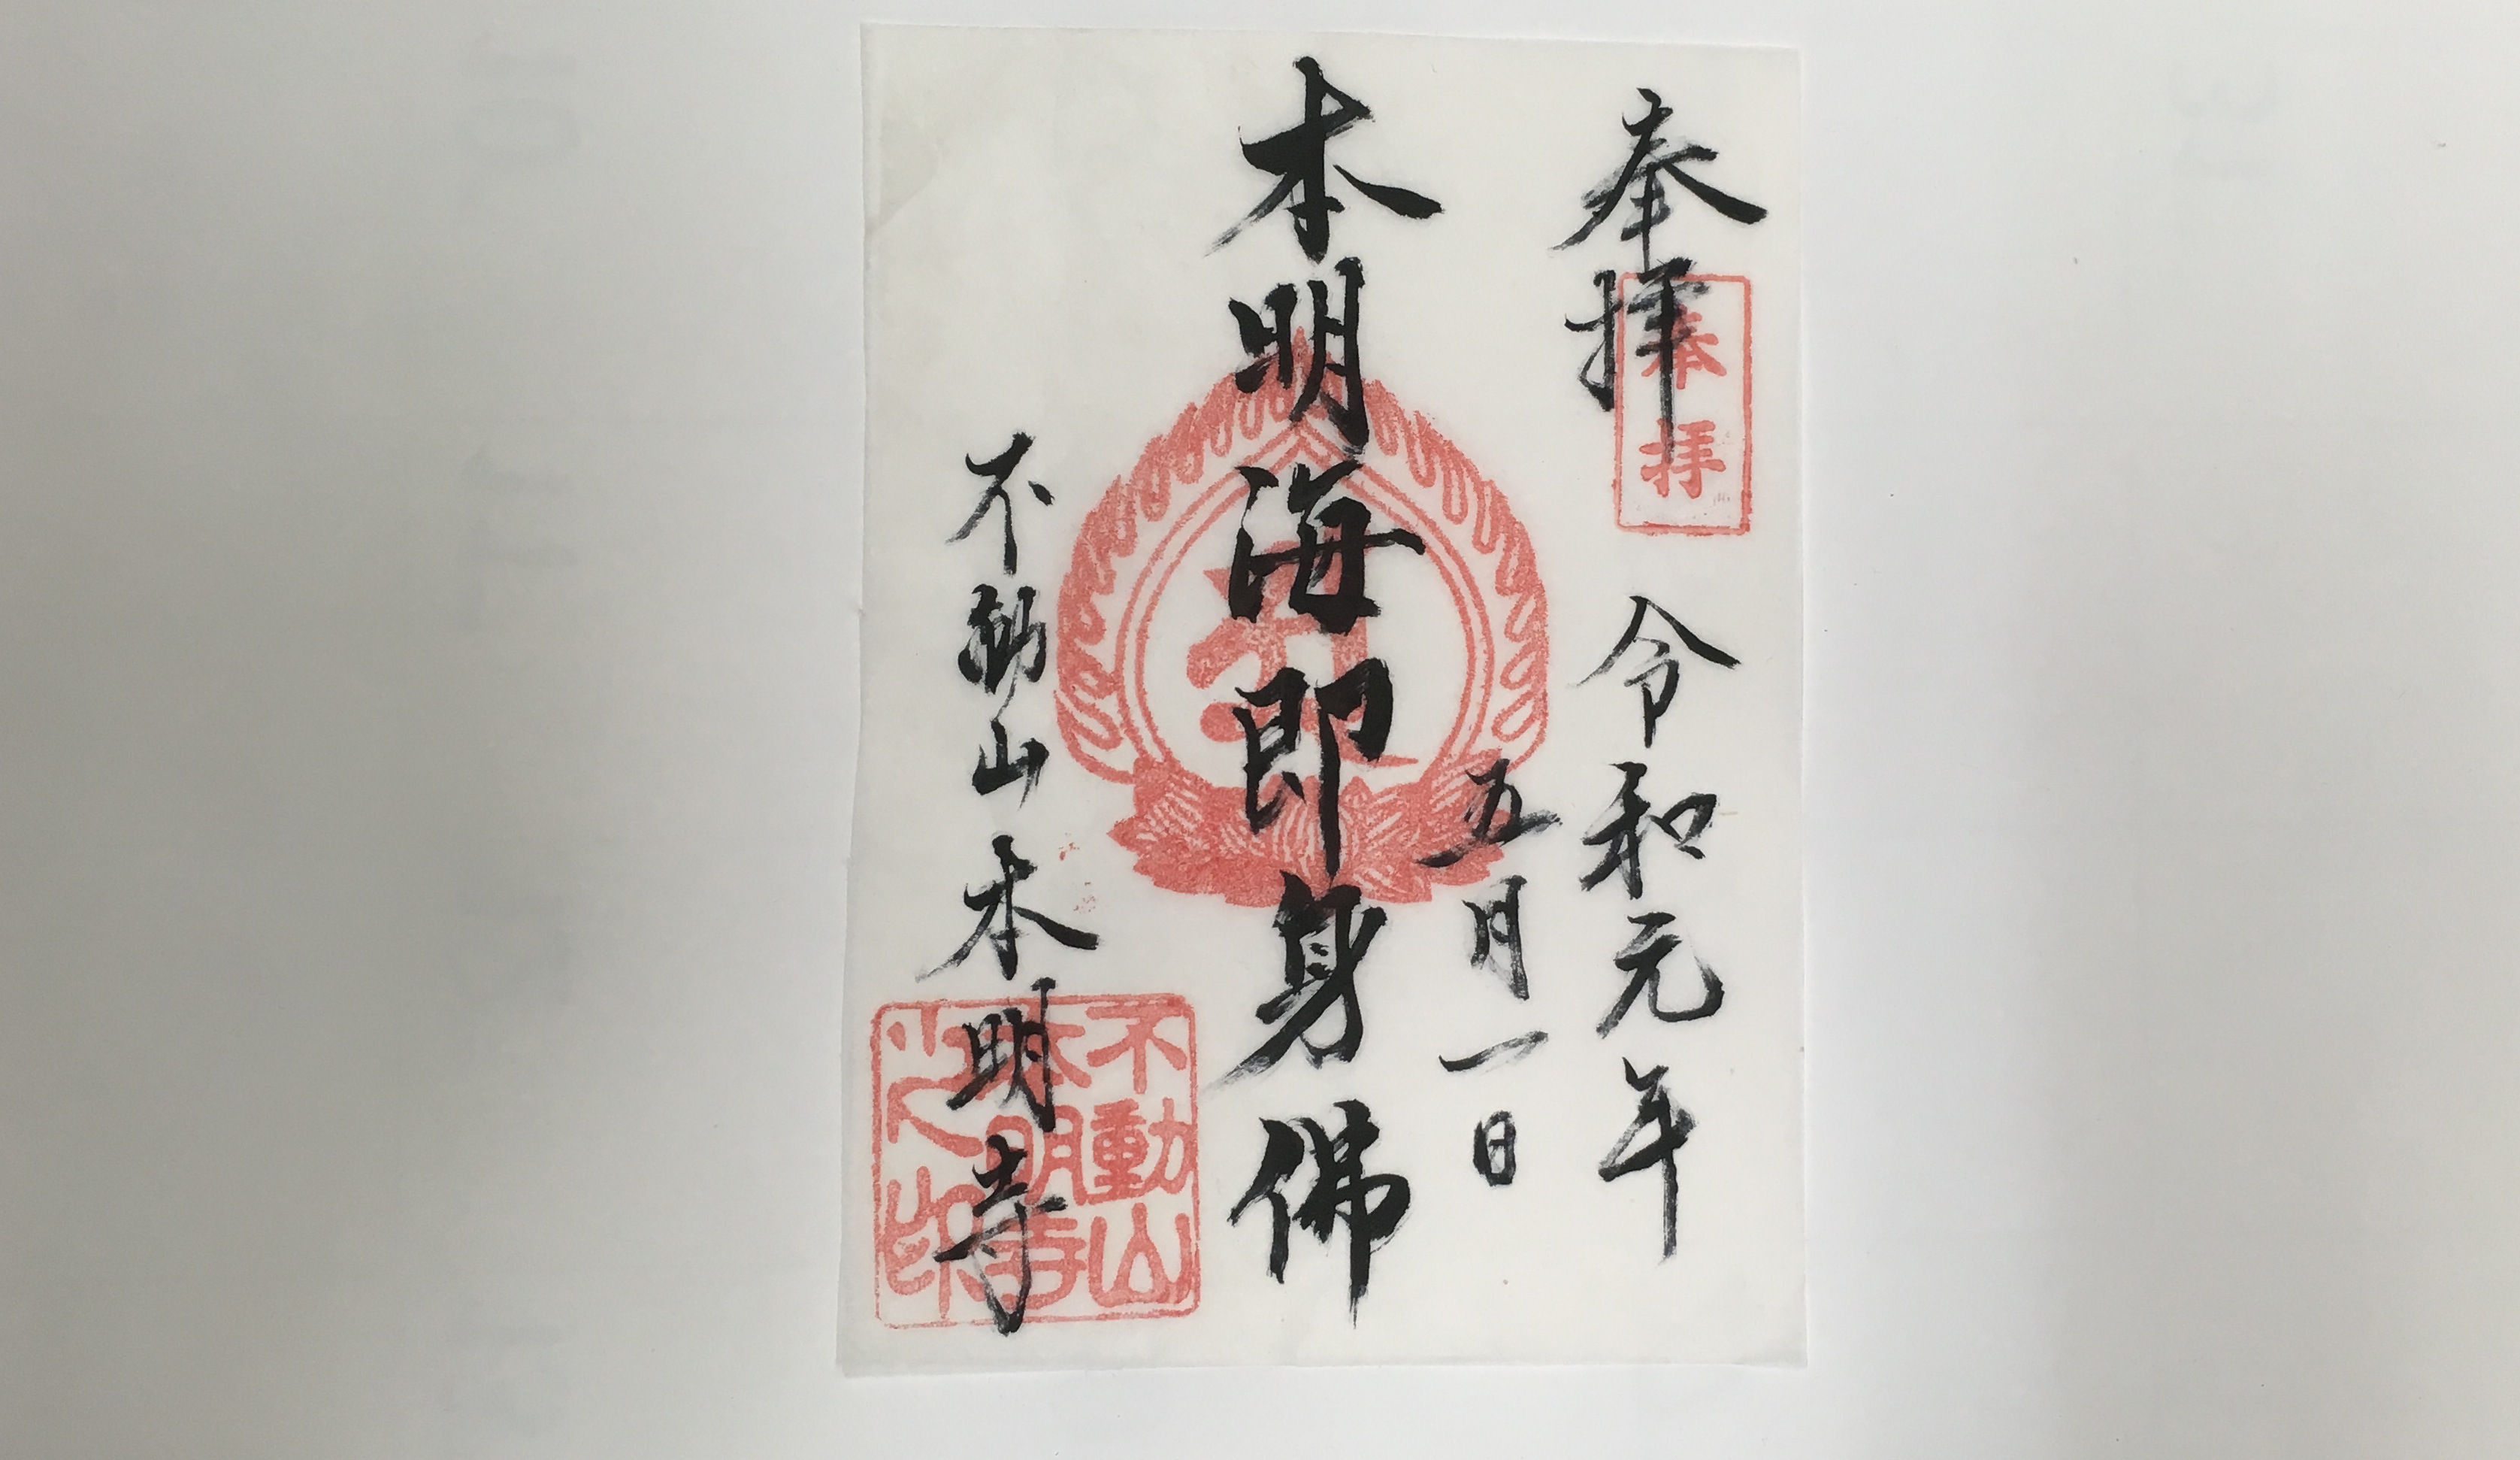 奉拝
奉拝
令和元年
五月一日
本明海即身佛
不動山本明寺
不動山
本明寺
之印